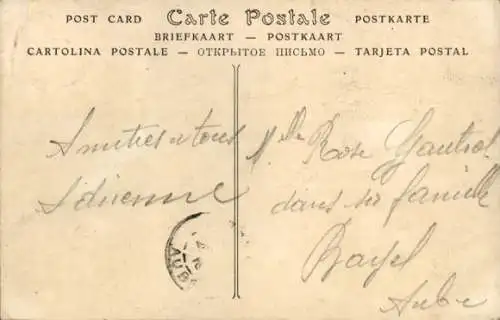 POST CARD Carte Postale POSTKARTE
BRIEFKAART — POSTKAART
CARTOLINA POSTALE — ОТКРЫТОЕ ПИСЬМО — TARJETA POSTAL
Amities a tous
Adrienne
Mlle Rose Gautrot
dans sa famille
Bayel
Aube
AUBE